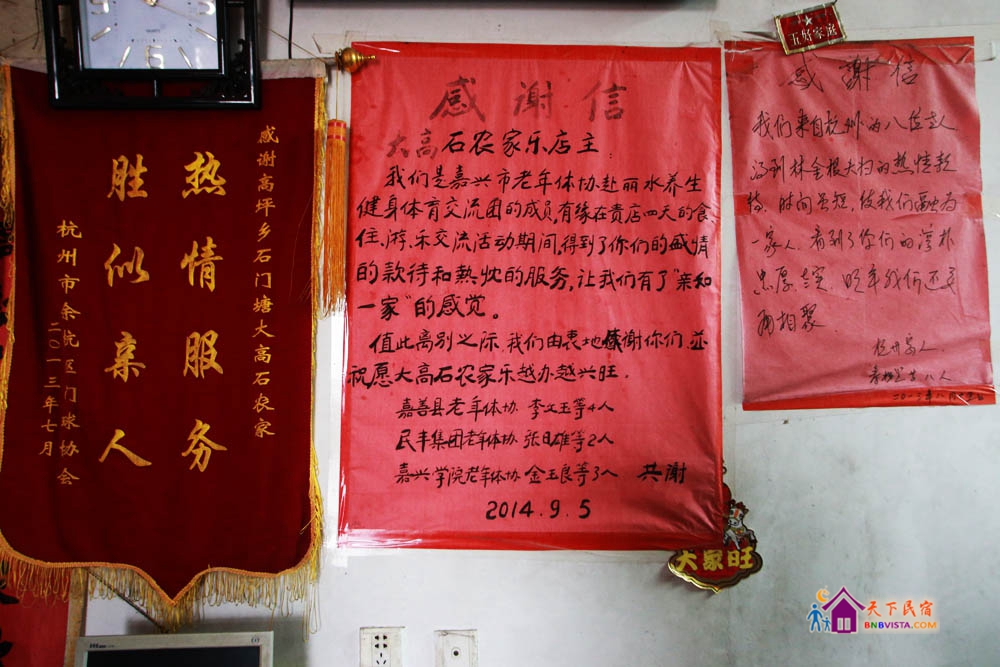 感谢高坪乡石门塘大高石农家
热情服务
胜似亲人
杭州市余杭区门球协会
二〇一三年七月
QUARTZ
感谢信
大高石农家乐店主：
我们是嘉兴市老年体协赴丽水养生
健身体育交流团的成员，有缘在贵店四天的食、
住、游、乐交流活动期间，得到了你们的盛情
的款待和熱忱的服务，让我们有了“亲和
一家”的感觉。
值此离别之际，我们由衷地感谢你们，並
祝愿大高石农家乐越办越兴旺。
嘉善县老年体协 李文玉等4人
民丰集团老年体协 张日雄等2人
嘉兴学院老年体协 金玉良等3人 共謝
2014.9.5
五好家庭
感谢信
我们来自杭州的八位老人
得到林金根大妈的热情款
待，时间虽短，使我们融为
一家人，看到了你们的淳朴
忠厚老实，明年我们还要
再相聚。
杭州客人
八人
大家旺
天下民宿
BNBVISTA.COM